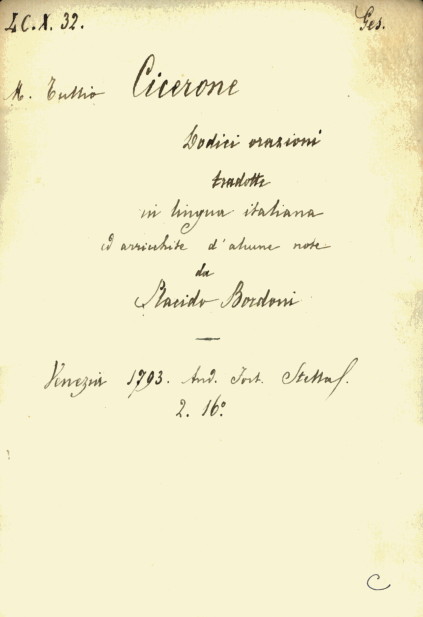 4 C. X. 32. Ges.
M. Tullio Cicerone
Dodici orazioni
tradotte
in lingua italiana
ed arricchite d'alcune note
da
Placido Bordoni
Venezia 1793. And. Fort. Stella
2. 16°
C